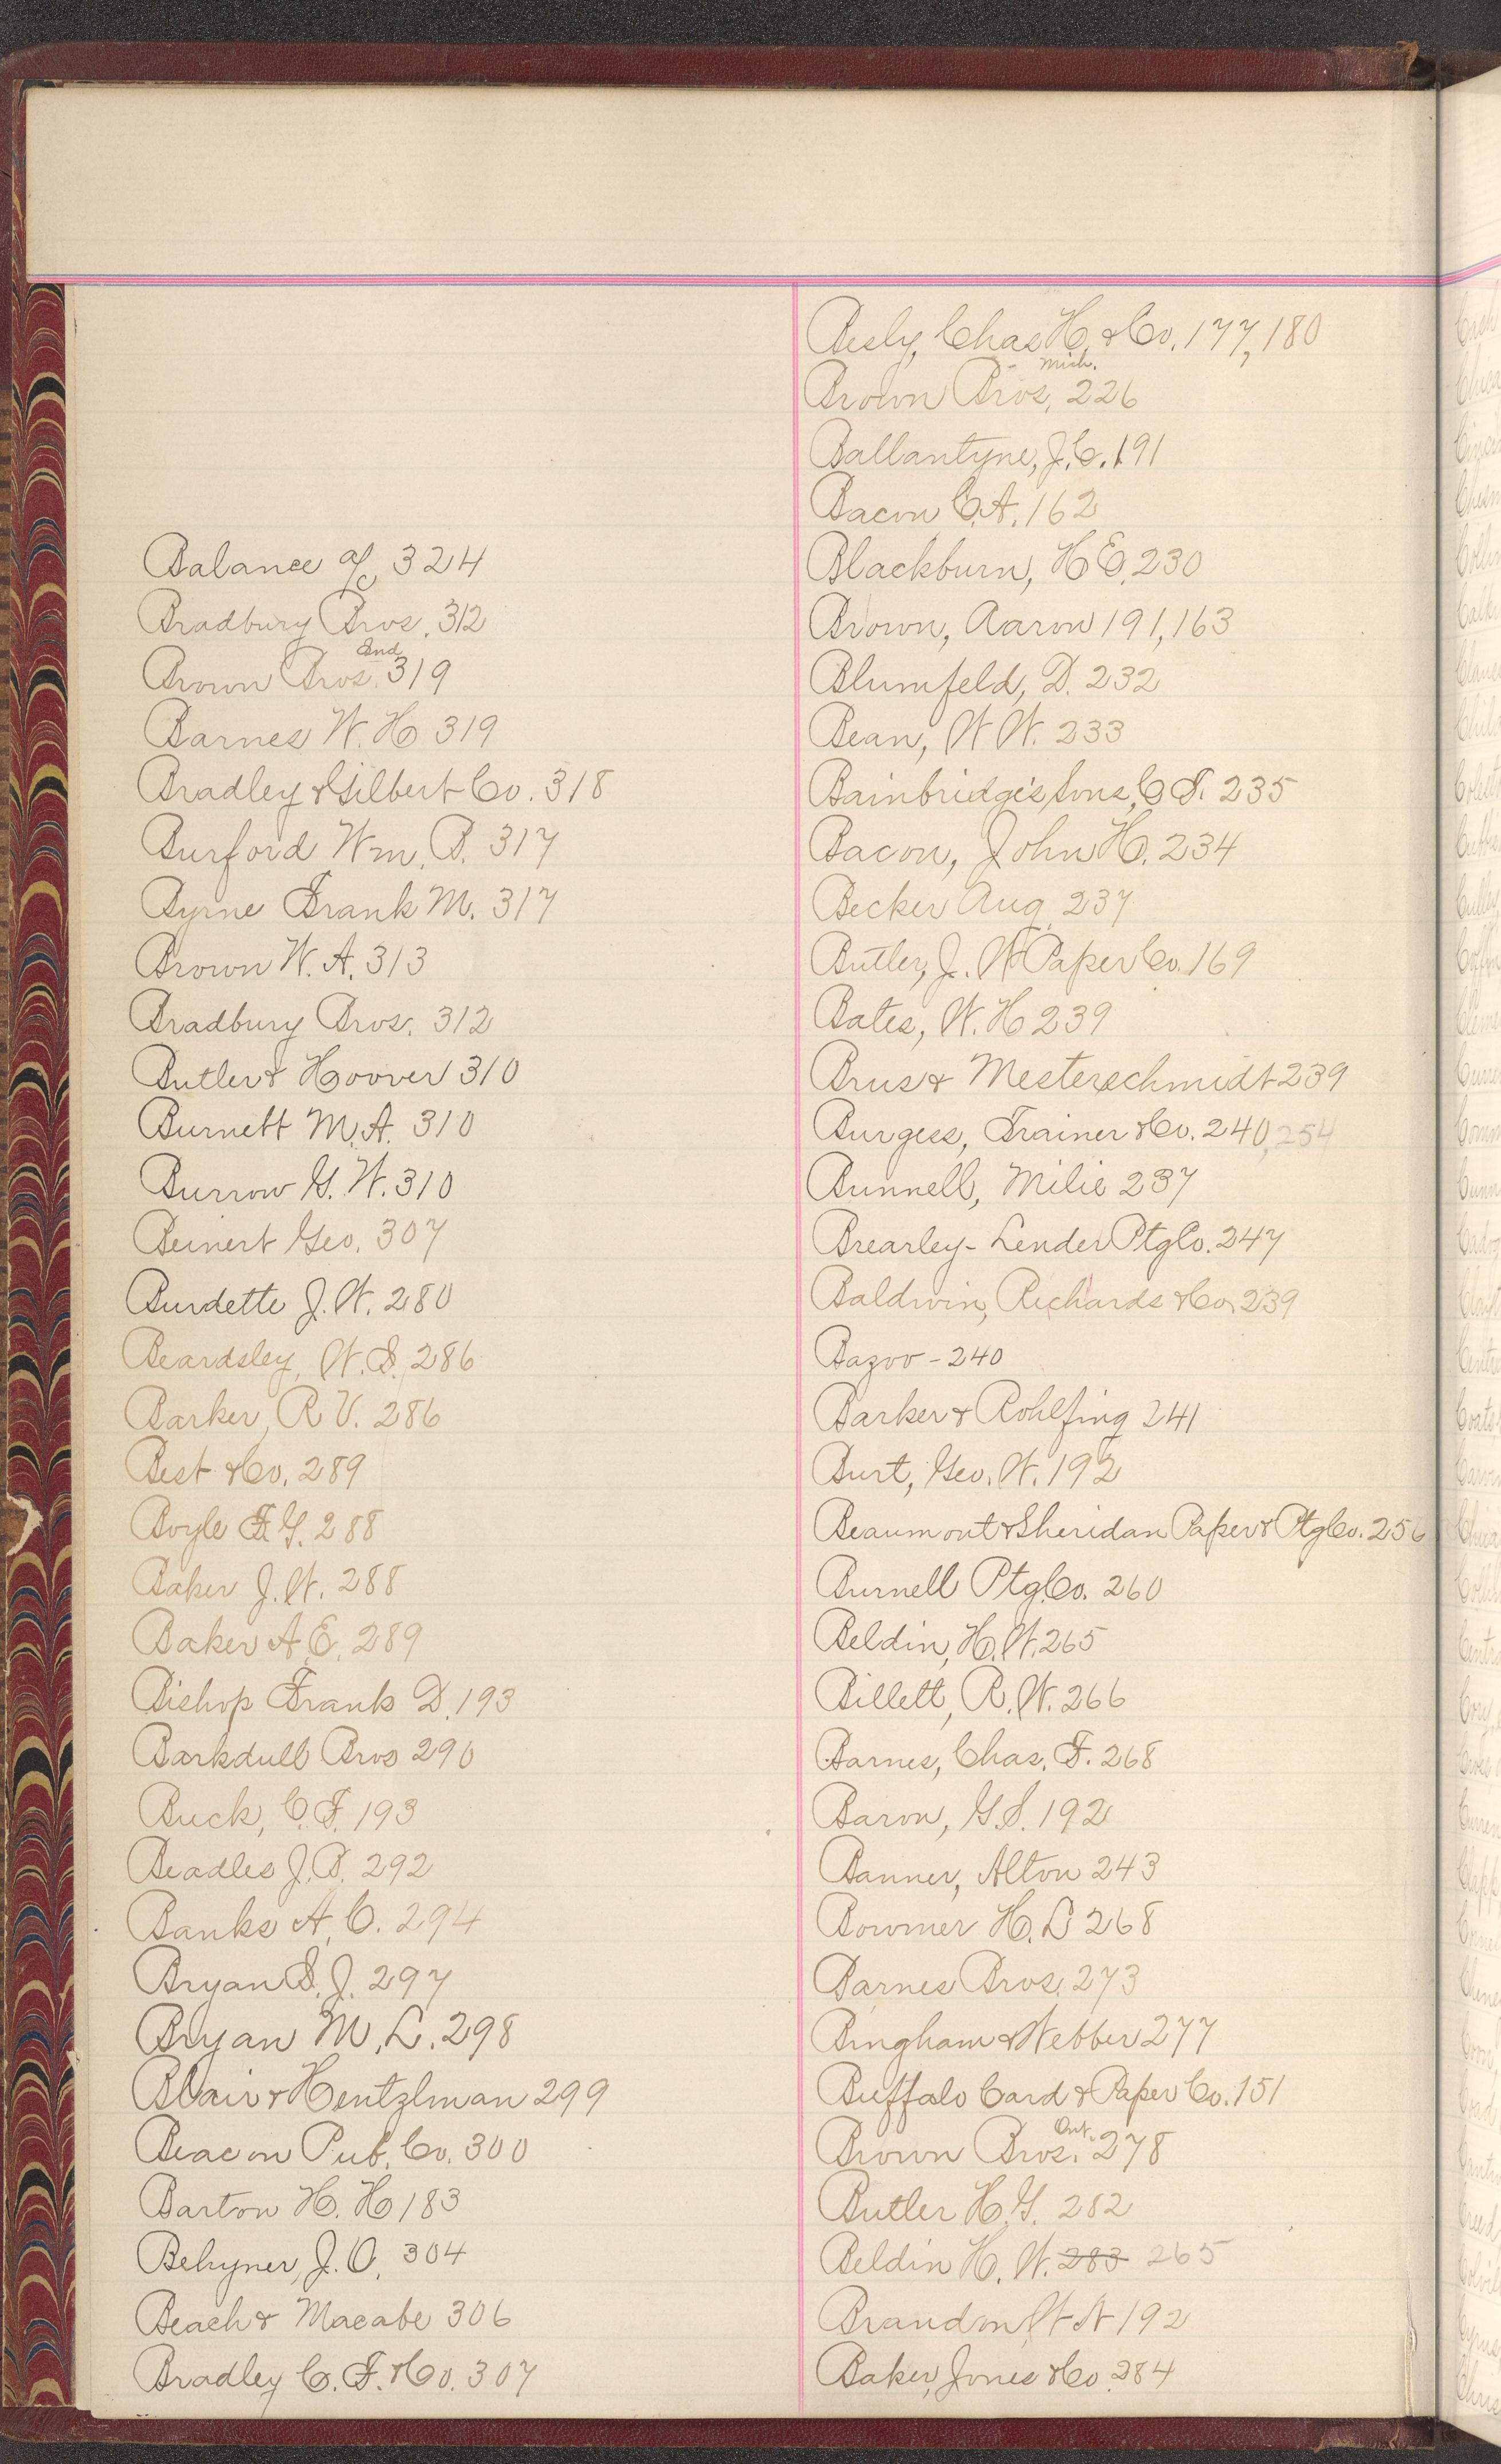 Balance a/c 324
Bradbury Bros. 312
Brown Bros. Ind 319
Barnes W. H 319
Bradley & Gilbert Co. 318
Burford Wm. B. 317
Byrne Frank M. 317
Brown W. A. 313
Bradbury Bros. 312
Butler & Hoover 310
Burnett M. A. 310
Burrow G. W. 310
Beinert Geo. 307
Burdette J. W. 280
Beardsley, W. S. 286
Barker, R V. 286
Best & Co. 289
Boyle F. G. 288
Baker J. W. 288
Baker A. E. 289
Bishop Frank D. 193
Barkdull Bros 290
Buck, C. F. 193
Beadles J. B. 292
Banks A. C. 294
Bryan S. J. 297
Bryan M. L. 298
Blair & Hentzlman 299
Beacon Pub. Co. 300
Barton H. H 183
Behymer, J. O. 304
Beach & Macabe 306
Bradley C. F. & Co. 307
Besly, Chas H. & Co. 177, 180
Brown Bros, Mich. 226
Ballantyne, J. C. 191
Bacon C. A. 162
Blackburn, H E. 230
Brown, Aaron 191, 163
Blumfeld, D. 232
Bean, W W. 233
Bainbridge's Sons, C T. 235
Bacon, John H. 234
Becker Aug. 237
Butler, J. W Paper Co. 169
Bates, W. H 239
Brus & Mesterschmidt 239
Burgess, Trainer & Co. 240, 254
Bunnell, Milie 237
Brearley - Lender Ptg Co. 247
Baldwin, Richards & Co, 239
Bazoo - 240
Barker & Rohlfing 241
Burt, Geo. W. 192
Beaumont & Sheridan Paper & Ptg Co. 256
Burnell Ptg. Co. 260
Beldin, H. W. 265
Billett, R. W. 266
Barnes, Chas. F. 268
Baron, G S. 192
Banner, Alton 243
Bowmer H. D 268
Barnes Bros. 273
Bingham & Webber 277
Buffalo Card & Paper Co. 151
Brown Bros. Ont. 278
Butler H. G. 282
Beldin H. W. 283 265
Brandon W A 192
Baker, Jones & Co. 284